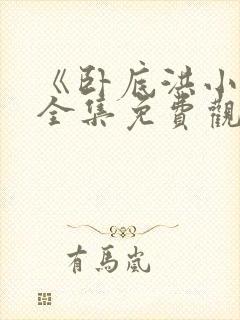 《卧底洪小
全集免費觀
有馬嵐